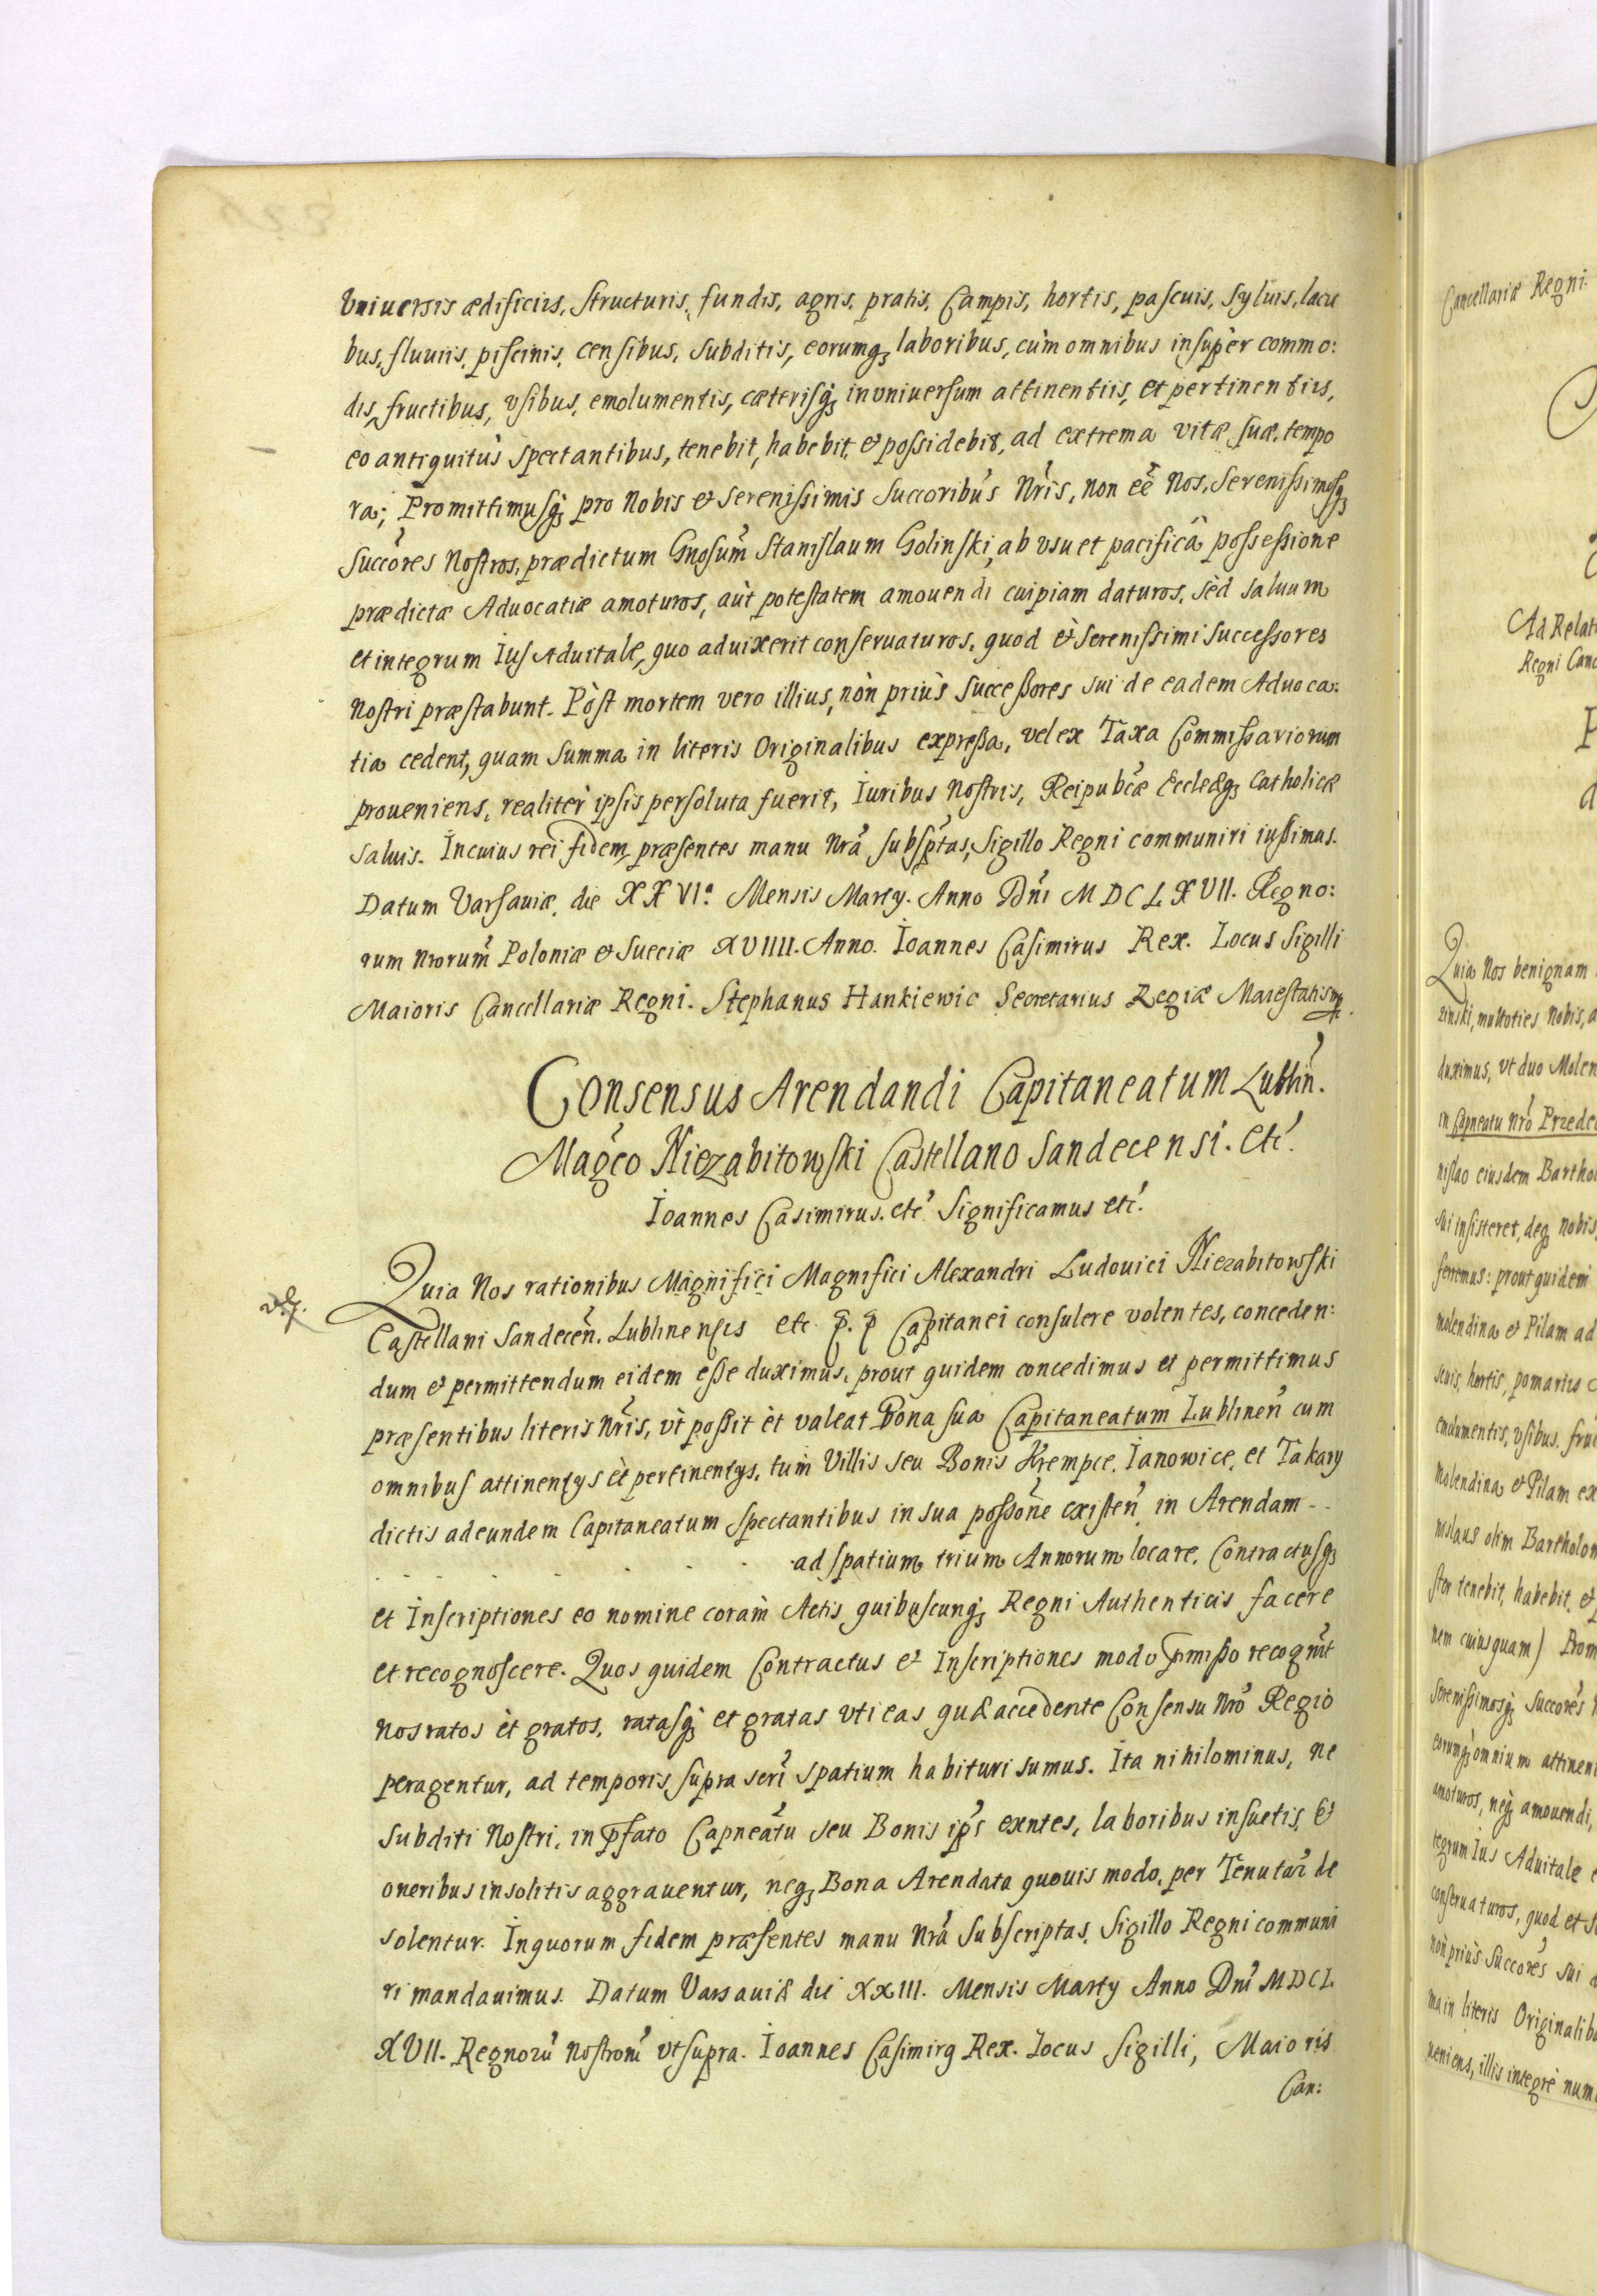 Vniuersis ædificijs, structuris, fundis, agris, pratis, Campis, hortis, pascuis, syluis, lacu
bus, fluuiis, piscinis, censibus, subditis, eorumq; laboribus, cùm omnibus insupèr commo:
dis, fructibus, vsibus, emolumentis, cæterisq; in vniuersum attinentiis, et pertinentiis,
eo antiquitùs spectantibus, tenebit, habebit, et possidebit, ad extrema vitæ suæ tempo
ra; Promittimusq; pro Nobis et Serenissimis Succoribus Nris, non eẽ Nos, Serenissimosq;
Succores Nostros, prædictum Gnosum Stanislaum Golinski, ab vsu et pacificâ possessione
prædictæ Aduocatiæ amoturos, aùt potestatem amouendi cuipiam daturos, sèd saluum
et integrum Ius Aduitale, quo aduixerit conseruaturos, quod èt Serenissimi Successores
Nostri præstabunt. Pòst mortem vero illius, nòn priùs successores sui de eadem Aduoca:
tia cedent, quam Summa in literis Originalibus expressa, vel ex Taxa Commissariorum
proueniens, realitèr ipsis persoluta fuerit, Iuribus Nostris, Reipubcæ Ecclæq; Catholicæ
saluis. In cuius rei fidem præsentes manu Nrâ subsptas, Sigillo Regni communiri iussimus.
Datum Varsauiæ, die XXVIª Mensis Martÿ. Anno Dni MDCLXVII. Regno:
rum Nrorum Poloniæ et Sueciæ XVIIII. Anno. Ioannes Casimirus Rex. Locus Sigilli
Maioris Cancellariæ Regni. Stephanus Hankiewic Secretarius Regiæ Maiestatis mp.
Consensus Arendandi Capitaneatum Lublin.
Magco Niezabitowski Castellano Sandecensi. etc.
Ioannes Casimirus. etc. Significamus etc.
Quia Nos rationibus Magnifici Magnifici Alexandri Ludouici Niezabitowski
Castellani Sandecen. Lublinensis etc. p. p Capitanei consulere volentes, conceden:
dum et permittendum eidem esse duximus, prout quidem concedimus et permittimus
præsentibus literis Nris, vt possit èt valeat Bona sua Capitaneatum Lublinen cum
omnibus attinentÿs èt pertinentÿs, tum Villis seu Bonis Krempce, Ianowice, et Takary
dictis ad eundem Capitaneatum spectantibus in sua possone existen in Arendam - -
- - - - - ad spatium trium Annorum locare, Contractusq;
et Inscriptiones eo nomine coràm Actis quibuscunq; Regni Authenticis facere
et recognoscere. Quos quidem Contractus et Inscriptiones modo pmisso recognit
nos ratos èt gratos, ratasq; et gratas vti eas quæ accedente Consensu Nro Regio
peragentur, ad temporis supra scri spatium habituri sumus. Ita nihilominus, ne
subditi Nostri, in pfato Capneatu seu Bonis ips exntes, laboribus insuetis, et
oneribus insolitis aggrauentur, neq; Bona Arendata quouis modo, per Tenutar de
solentur. In quorum fidem præsentes manu Nrâ subscriptas, Sigillo Regni communi
ri mandauimus. Datum Varsauiæ die XXIII. Mensis Martÿ Anno Dni MDCL
XVII. Regnorũ Nostrorũ vt supra. Ioannes Casimirq Rex. Locus Sigilli, Maioris
Can:
Cancellariæ Regni.
Ad Relat
Regni Canc
Quia Nos benignam
zinski, multoties Nobis, a
duximus, vt duo Molen
in Capneatu Nro Przede
nislao eiusdem Barthol
sui insisteret, deq; nobis
ferremus: prout quidem
molendina et Pilam ad
scuis, hortis, pomariis
emolumentis, vsibus, fru
Molendina et Pilam ex
nislaus olim Bartholom
stor tenebit, habebit, et p
nem cuiusquam) Prom
Serenissimosq; Succores
eorumq; omnium attinen
amoturos, neq; amouendi,
tegrum Ius Aduitale
conseruaturos, quod et S
nòn priùs succores sui
ma in literis Originalibu
ueniens, illis integrè num